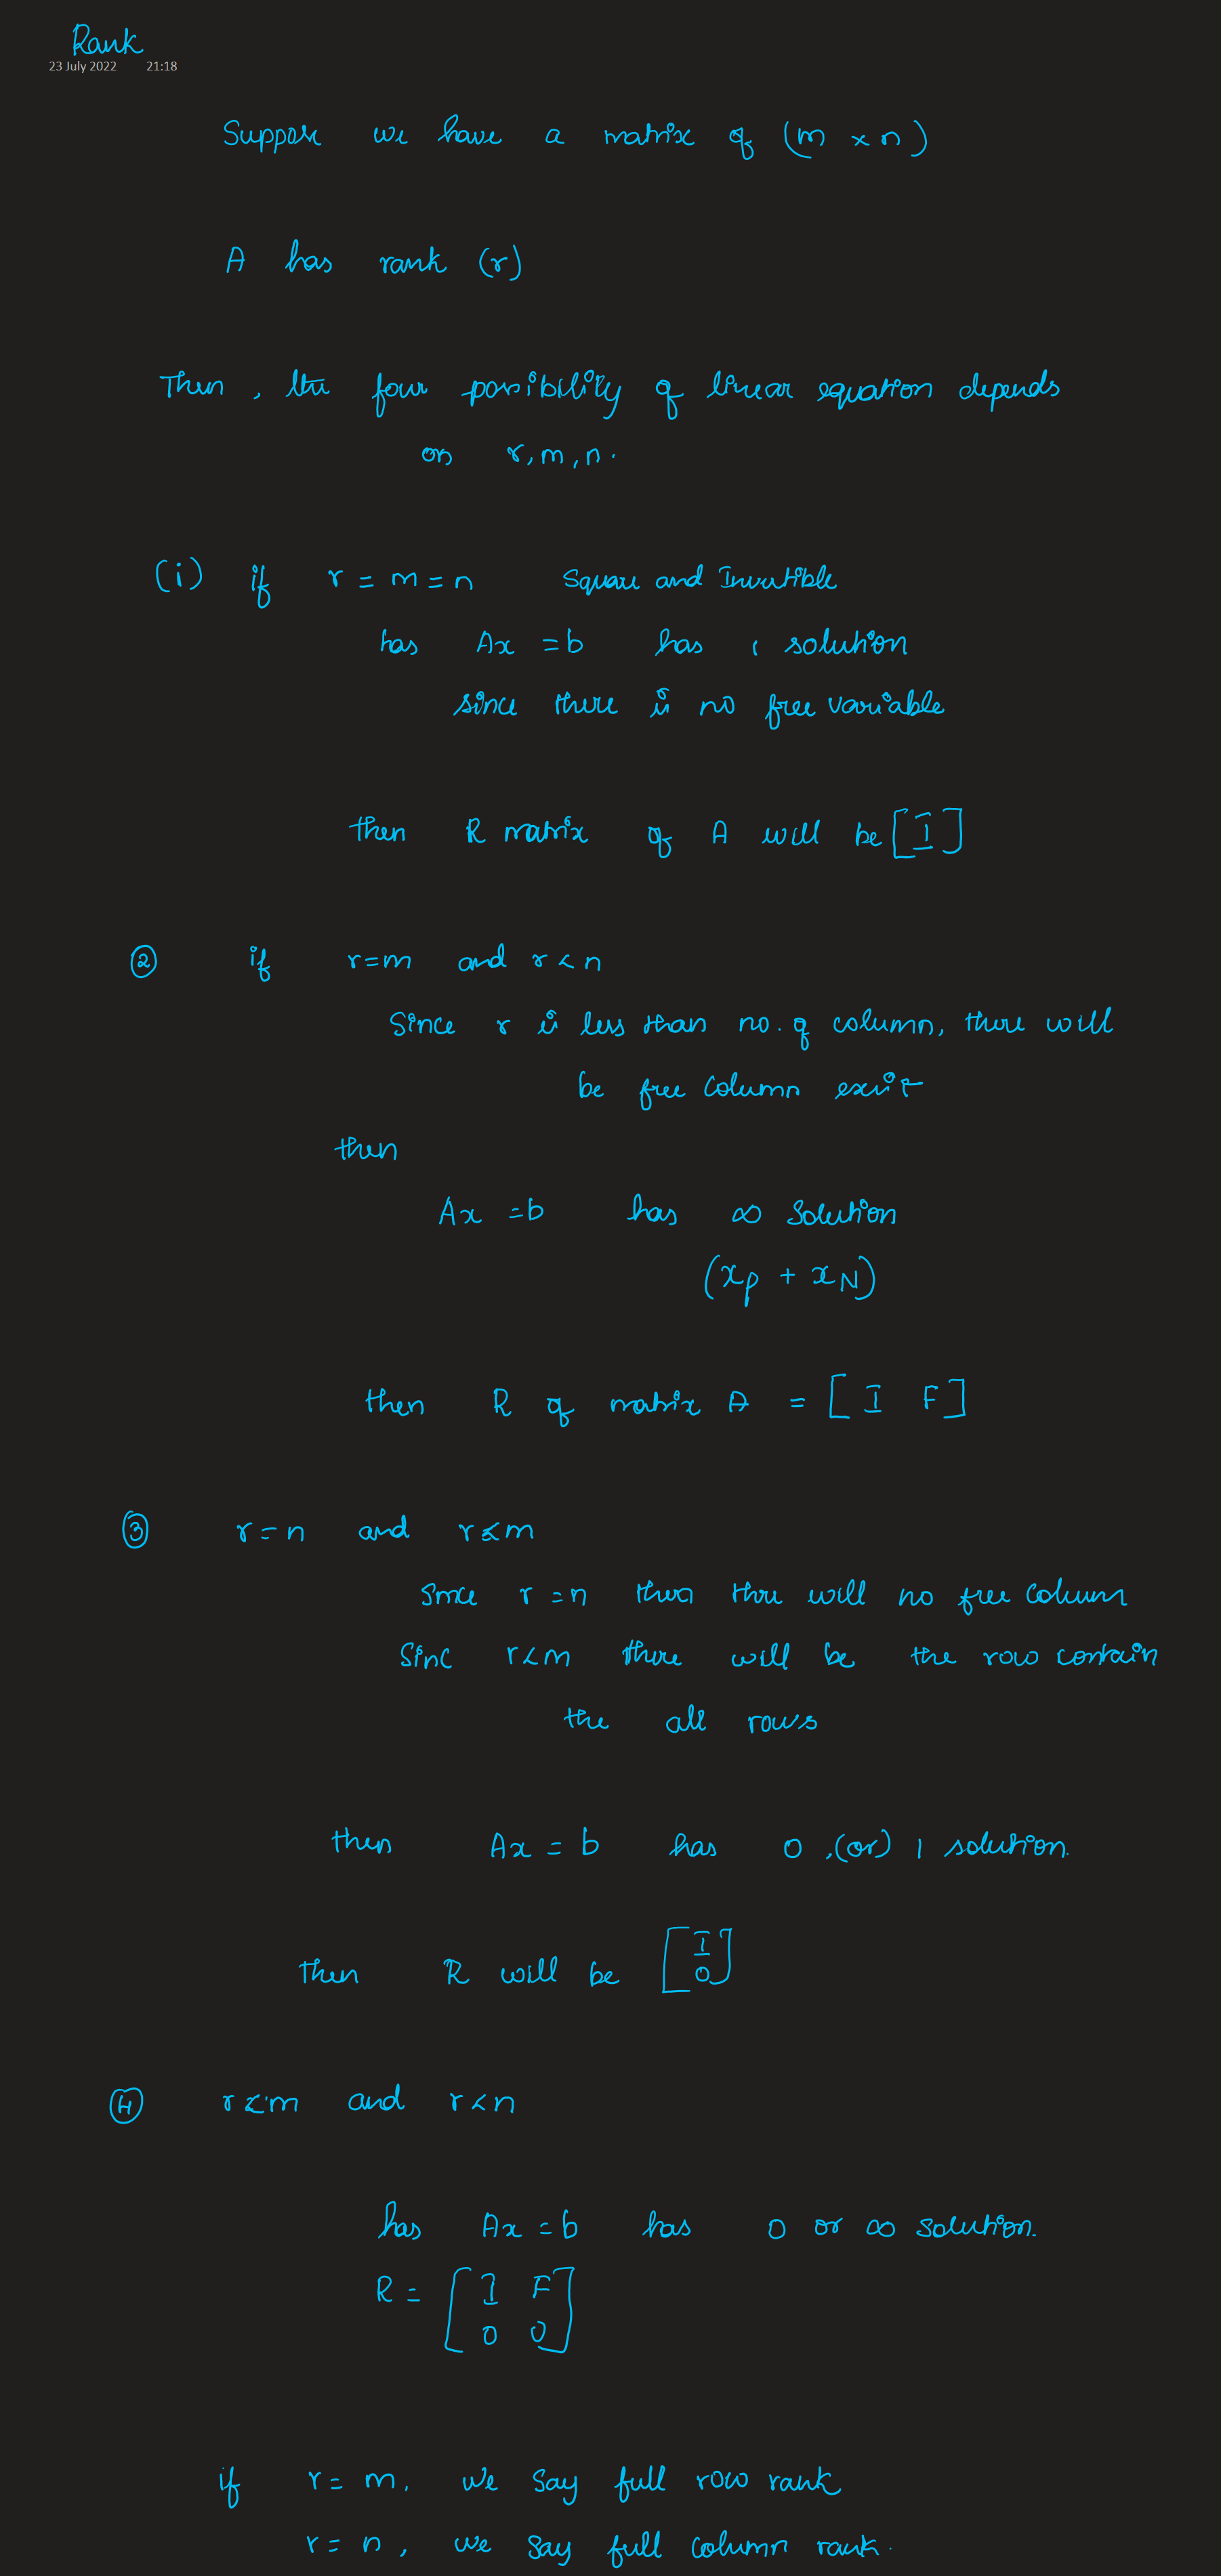 Rank
23 July 2022 21:18
Suppose we have a matrix of (m × n)
A has rank (r)
Then, the four possibility of linear equation depends
on r, m, n.
(i) if r = m = n Square and Invertible
has Ax = b has 1 solution
since there is no free variable
then R matrix of A will be [I]
② if r=m and r < n
Since r is less than no. of column, there will
be free column exist
then
Ax = b has ∞ solution
(xp + xN)
then R of matrix A = [I F]
③ r = n and r < m
Since r = n then there will no free column
Sinc r < m there will be the row contain
the all rows
then Ax = b has 0, (or) 1 solution.
then R will be [I
0]
④ r < m and r < n
has Ax = b has 0 or ∞ solution.
R = [I F
0 0]
if r = m, we say full row rank
r = n, we say full column rank.